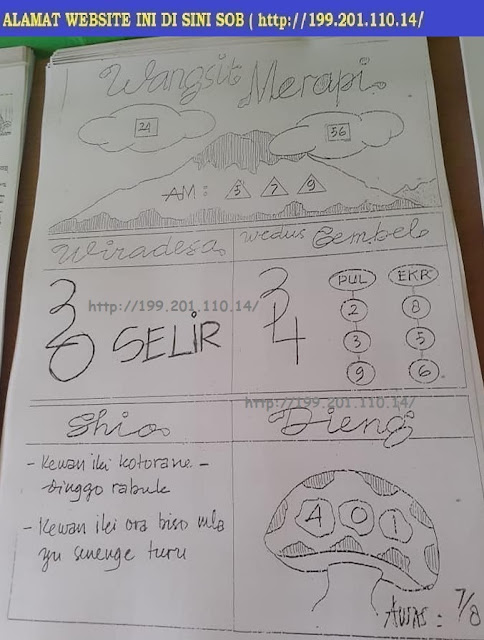 ALAMAT WEBSITE INI DI SINI SOB ( http://199.201.110.14/
Wangsit Merapi
24
56
AM : 5 7 9
Wiradesa
Wedus Gembel
http://199.201.110.14/
3
6 SELIR
3
4
PUL EKR
2 8
3 5
9 6
http://199.201.110.14/
Shio
Dieng
- Kewan iki kotorane
binggo rabuk
- Kewan iki ora biso mla
yu senenge turu
4 0 1
7/8